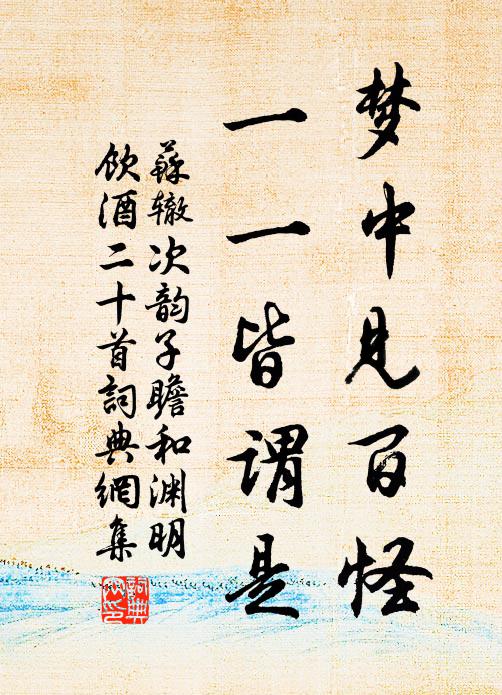 梦中见百怪
一一皆谓是
蘇辙次韵子瞻和渊明
饮酒二十首詞典網集